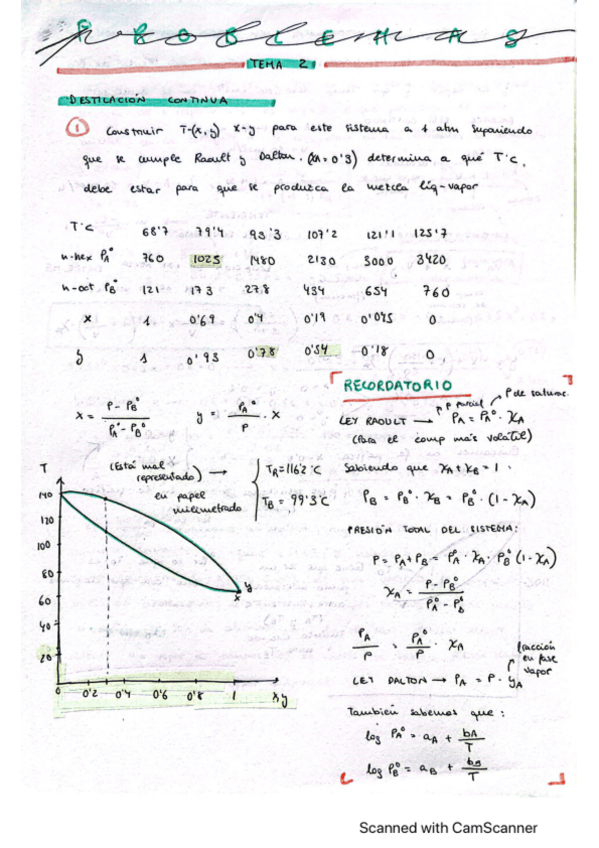 PROBLEMAS
TEMA 2
DESTILACIÓN CONTINUA
1 Construir T-(x,y) x-y para este sistema a 1 atm suponiendo
que se cumple Raoult y Dalton. (xA=0'3) determina a qué Tªc.
debe estar para que se produzca la mezcla liq-vapor
TªC 68'7 79'4 93'3 107'2 121'1 125'7
n-hex PA° 760 1025 1480 2130 3000 3420
n-oct PB° 121 173 278 434 654 760
x 1 0'69 0'4 0'19 0'045 0
y 1 0'93 0'78 0'54 0'18 0
x = P-PB° / PA°-PB° y = PA° / P · x
(Está mal representado) → en papel milimetrado
TR=116'2 ºC
TB = 99'3ºC
T
140
120
100
80
60
40
20
0 0'2 0'4 0'6 0'8 1 x,y
y
x
RECORDATORIO
P parcial P de saturac.
LEY RAOULT → PA = PA° · XA
(Para el comp más volátil)
Sabiendo que XA + XB = 1 ·
PB = PB° · XB = PB° · (1-XA)
PRESIÓN TOTAL DEL SISTEMA:
P = PA+PB = PA° · XA · PB° (1-XA)
XA = P-PB° / PA°-PB°
PA / P = PA° / P · XA
fracción en fase vapor
LEY DALTON → PA = P · yA
También sabemos que:
log PA° = aA + bA / T
log PB° = aB + bB / T
Scanned with CamScanner